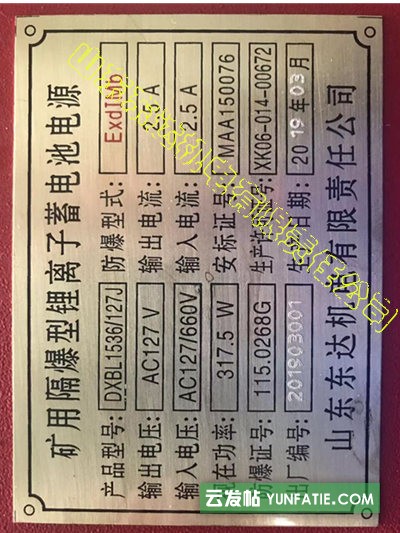 矿用隔爆型锂离子蓄电池电源
产品型号: DXBL1536/127J 防爆型式: ExdIMb
输出电压: AC127 V 输出电流: 2.5 A
输入电压: AC127/660V 输入电流: 2.5 A
功率: 317.5 W 安标证号: MAA150076
防爆证号: 115.0268G 生产许 号: XK06-014-00672
出厂编号: 201903001 生 日期: 2019年03月
山东东达机电有限责任公司
山东东达机电有限责任公司
云发帖 YUNFATIE.COM